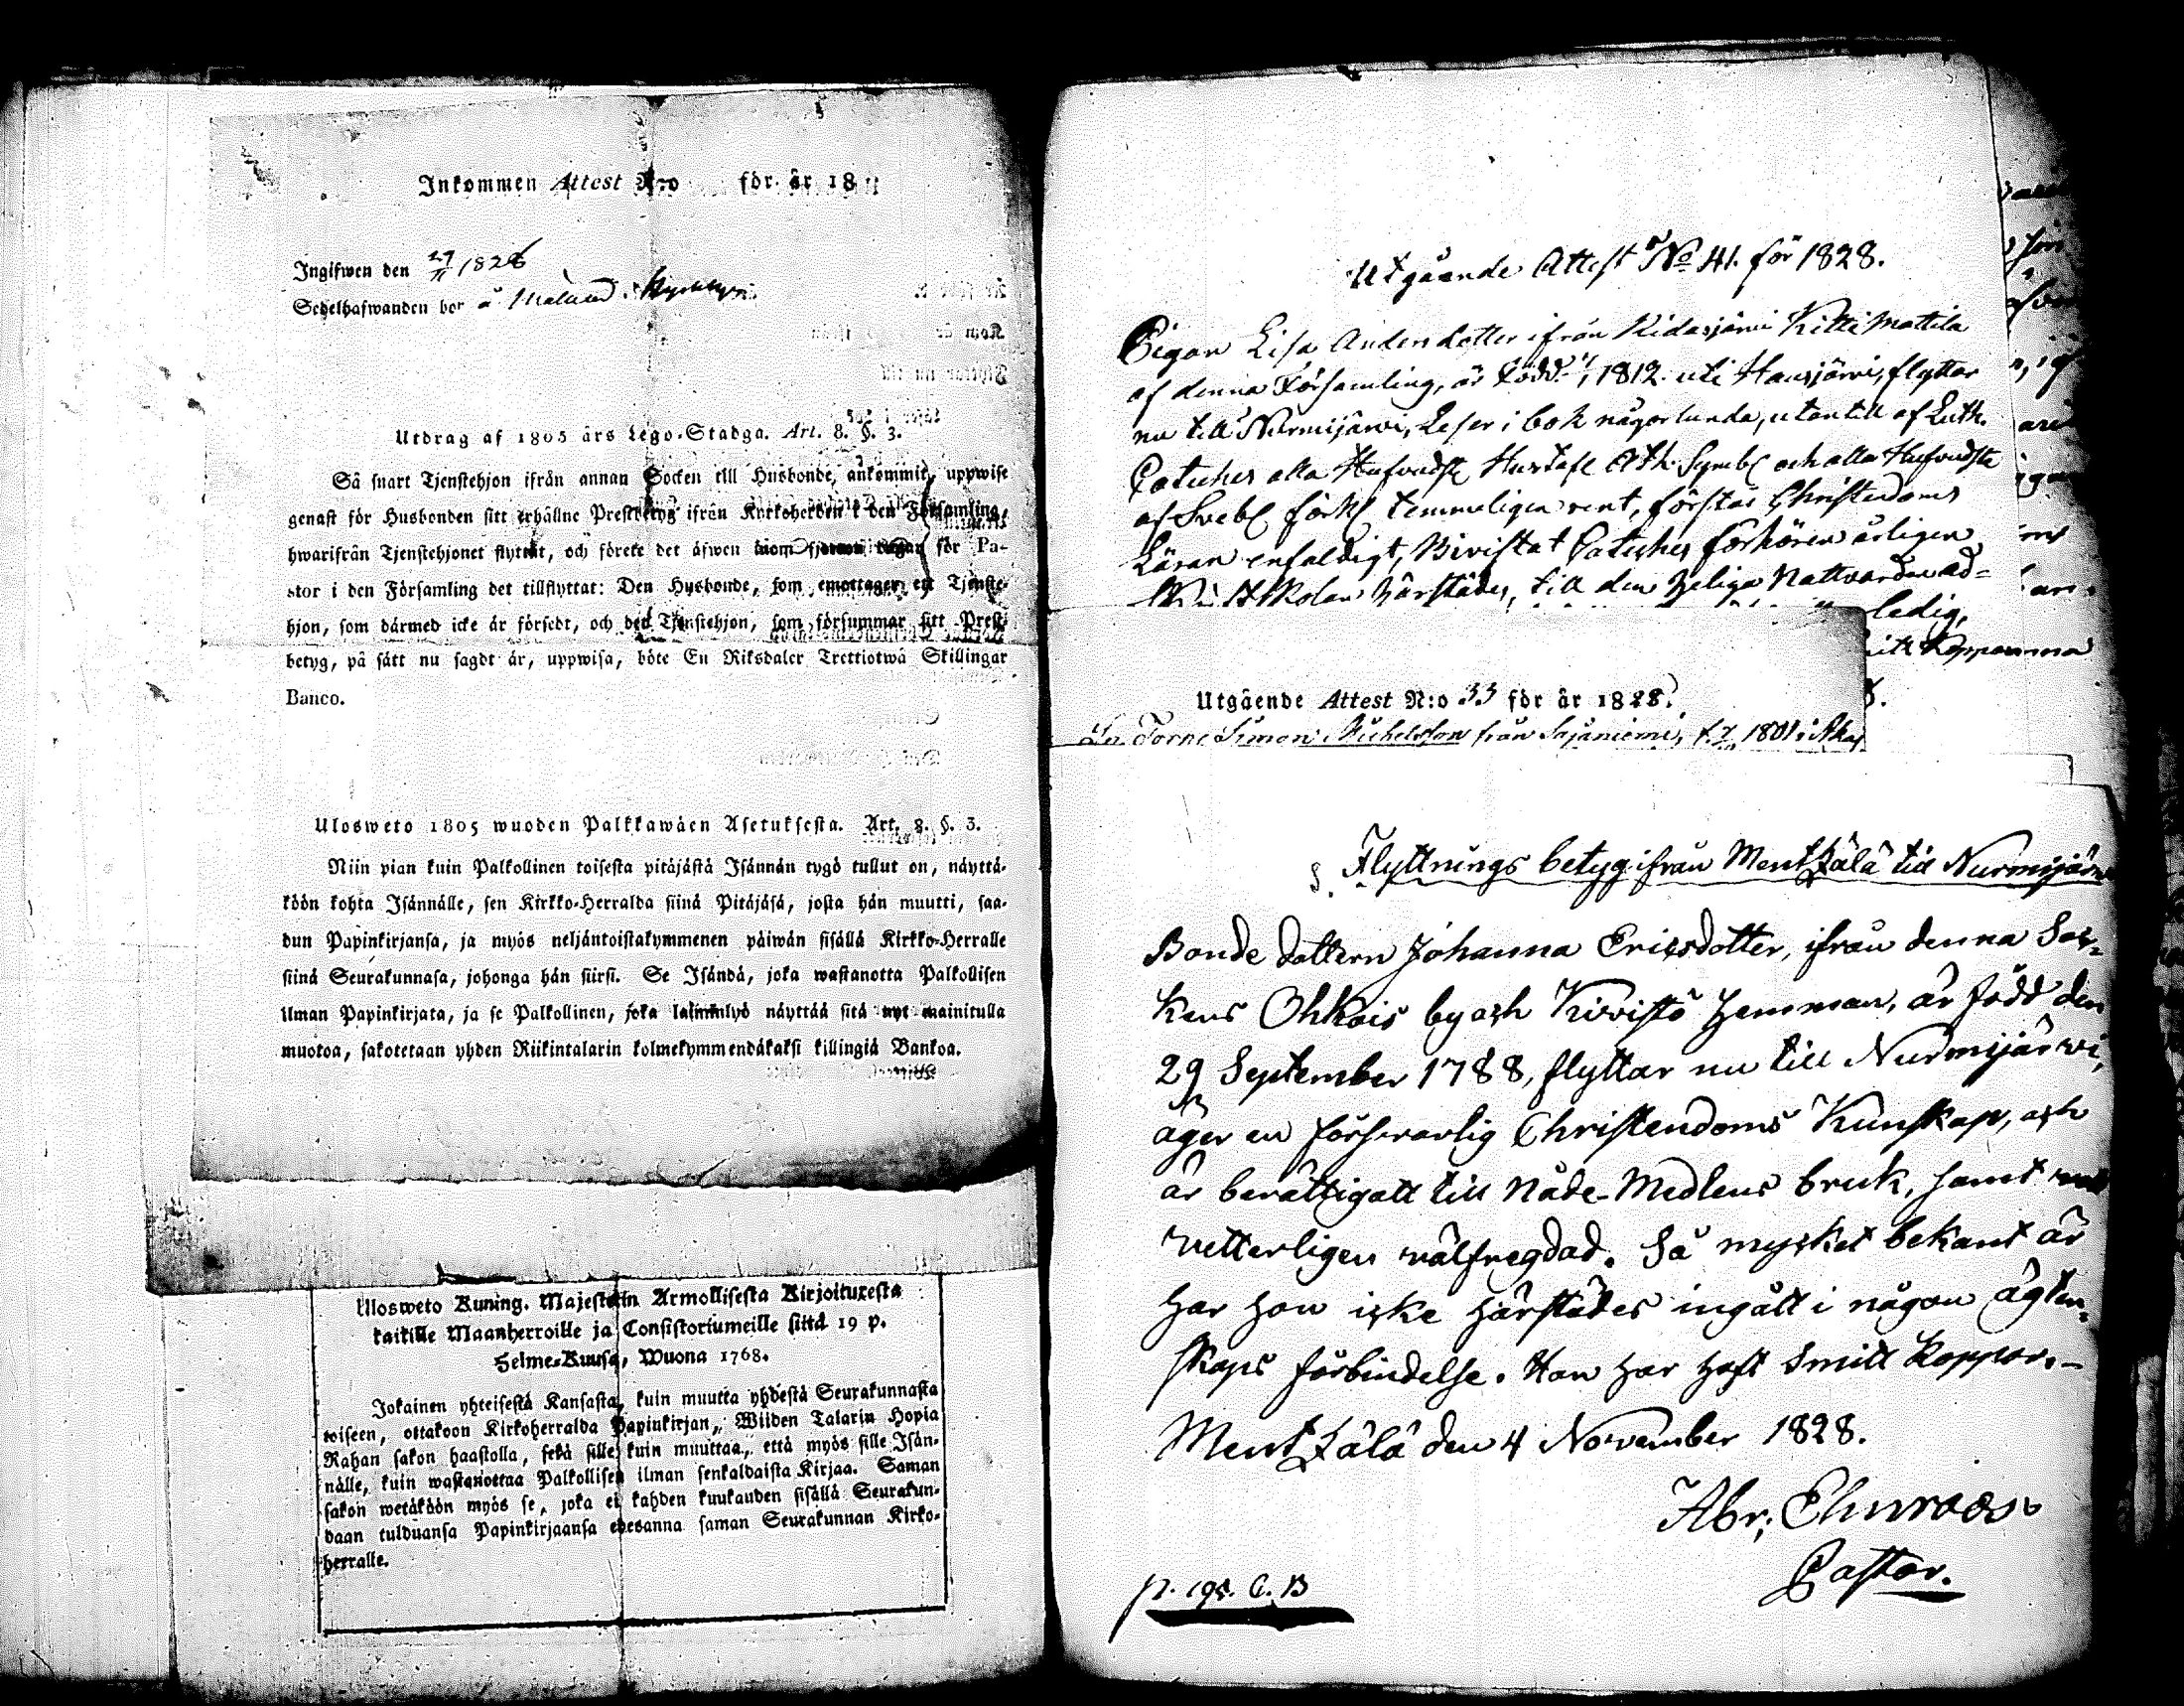 Inkommen Attest N:o för år 18
Ingifwen den 29/11 1828
Sedelhafwanden bor å
Utdrag af 1805 års Lego-Stadga. Art. 8. §. 3.
Så snart Tjenstehjon ifrån annan Socken till Husbonde, ankommit, uppwise
genast för Husbonden sitt erhållne Prestbetyg ifrån Kyrkoherden i den Församling,
hwarifrån Tjenstehjonet flyttat, och förete det äfwen inom fjorton dagar för Pa-
stor i den Församling det tillflyttat: Den Husbonde, som emottager ett Tjenste-
hjon, som därmed icke är försedt, och det Tjenstehjon, som försummar sitt Prest-
betyg, på sätt nu sagdt är, uppwisa, böte En Riksdaler Trettiotwå Skillingar
Banco.
Ulosweto 1805 wuoden Palkkawäen Asetuksesta. Art. 8. §. 3.
Niin pian kuin Palkollinen toisesta pitäjästä Isännän tygö tullut on, näyttä-
köön kohta Isännälle, sen Kirkko-Herralda siinä Pitäjäsä, josta hän muutti, saa-
dun Papinkirjansa, ja myös neljäntoistakymmenen päiwän sisällä Kirkko-Herralle
siinä Seurakunnasa, johonga hän siirsi. Se Isändä, joka wastanotta Palkollisen
ilman Papinkirjata, ja se Palkollinen, joka laiminlyö näyttää sitä nyt mainitulla
muotoa, sakotetaan yhden Riikintalarin kolmekymmendäkaksi killingiä Bankoa.
Ulosweto Kuning. Majestetin Armollisesta Kirjoituxesta
kaikille Maanherroille ja Consistoriumeille siitä 19 p.
Helme-Kuusa, Wuona 1768.
Jokainen yhteisestä Kansasta, kuin muutta yhdestä Seurakunnasta
toiseen, ottakoon Kirkoherralda Papinkirjan, Wiiden Talarin Hopia
Rahan sakon haastolla, sekä sille kuin muuttaa, että myös sille Isän-
nälle, kuin wastanottaa Palkollisen ilman senkaldaista Kirjaa. Saman
sakon wetäköön myös se, joka ei kahden kuukauden sisällä Seurakun-
daan tulduansa Papinkirjaansa edesanna saman Seurakunnan Kirko-
herralle.
Utgående Attest No 41. för 1828.
Pigan Lisa Andersdotter ifrån Kidasjärvi Kitti Mattila
af denna Församling, är född 1812 uti Hausjärvi, flyttar
nu till Nurmijärvi, Läser i bok någorlunda, utantill af Luth.
Cateches alla Hufvudst Hustafl Ath. Symb och alla Hufvudste
af Sveb förkl temmeligen rent, förstår Christendoms
Läran enfaldigt, Bivistat Cateches förhören årligen
Skolan härstädes, till den heliga Nattvarden ad-
ledig,
Koppuorna
Utgående Attest N:o 33 för år 1828.
Simon Michelsson från Sajaniemi, f. 1801 i
Flyttnings betyg ifrån Mentzälä till Nurmijärvi
Bonde dottern Johanna Ericsdotter, ifrån denna Soc-
kens Ohkois by och Kivistö Hemman, är född den
29 September 1788, flyttar nu till Nurmijärwi,
äger en försvarlig Christendoms Kunskap, och
är berättigatt till Nåde-Medlens bruk, samt
vetterligen välfregdad. Så mycket bekant är
har hon icke härstädes ingått i någon ägten-
skaps förbindelse. Hon har haft Smitt Koppor.-
Mentzälä den 4 November 1828.
Abr; Elmroos
Pastor.
p. 195. C. B